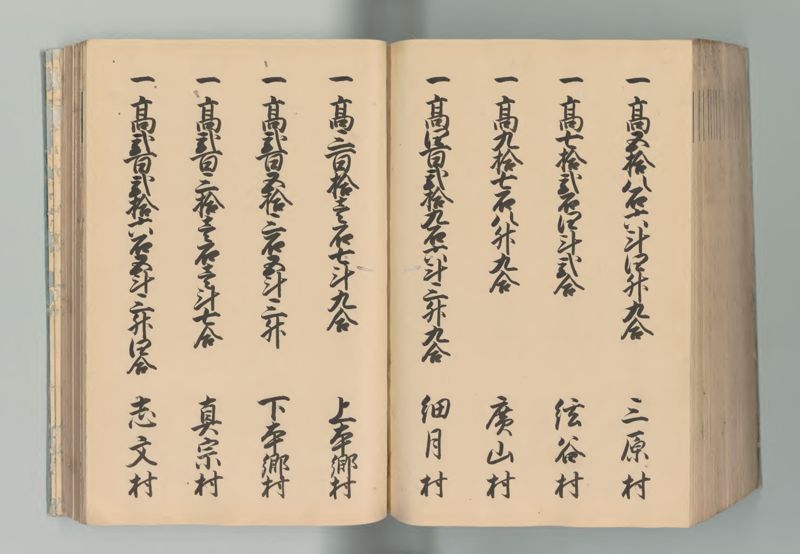 一 高五拾八石六斗四升九合 三原村
一 高七拾弐石四斗弐合 弦谷村
一 高九拾七石八升九合 廣山村
一 高四百弐拾九石六斗三升九合 細月村
一 高三百拾壱石七斗九合 上本郷村
一 高弐百五拾三石五斗三升 下本郷村
一 高弐百三拾壱石壱斗七合 真宗村
一 高弐百弐拾六石五斗三升四合 志文村